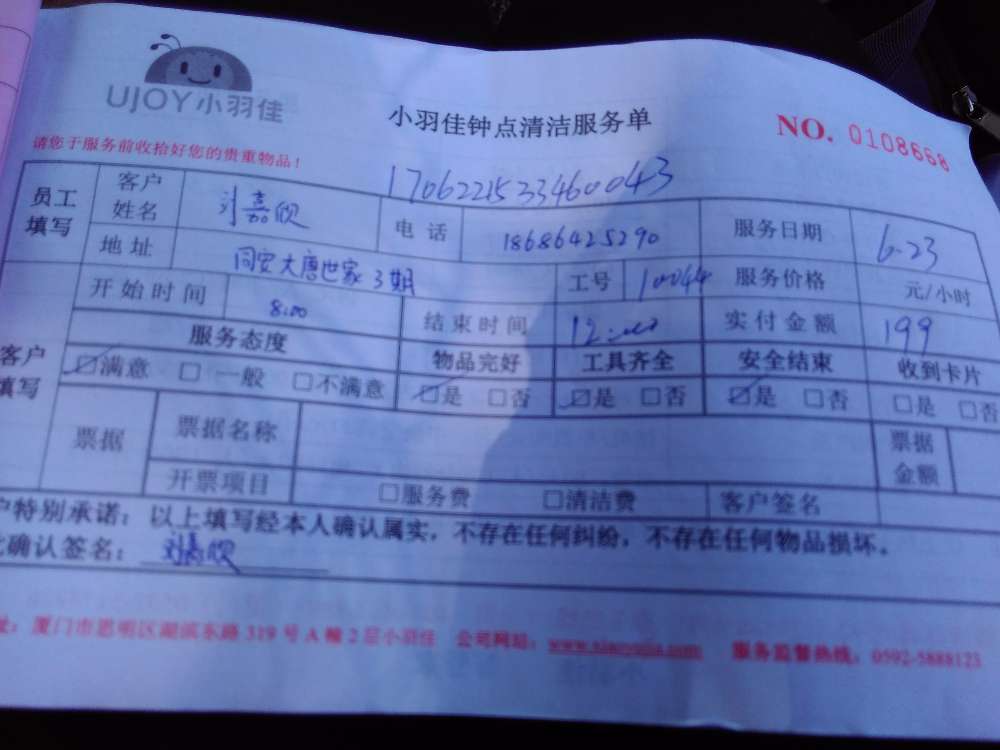 UJOY小羽佳
小羽佳钟点清洁服务单
NO. 0108668
请您于服务前收拾好您的贵重物品！
1706221533460043
员工填写 客户姓名 刘嘉 电话 18686425290 服务日期 6.23
地址 同安大唐世家3期 工号 10044 服务价格 元/小时
开始时间 8:00 结束时间 12:00 实付金额 199
客户填写 服务态度 物品完好 工具齐全 安全结束 收到卡片
☑满意 □一般 □不满意 ☑是 □否 ☑是 □否 ☑是 □否 □是 □否
票据 票据名称 票据金额
开票项目 □服务费 □清洁费 客户签名
户特别承诺：以上填写经本人确认属实，不存在任何纠纷，不存在任何物品损坏。
确认签名：刘嘉
址：厦门市思明区湖滨东路 319 号 A 幢 2 层小羽佳 公司网站：www.xiaoyujia.com 服务监督热线：0592-5888123